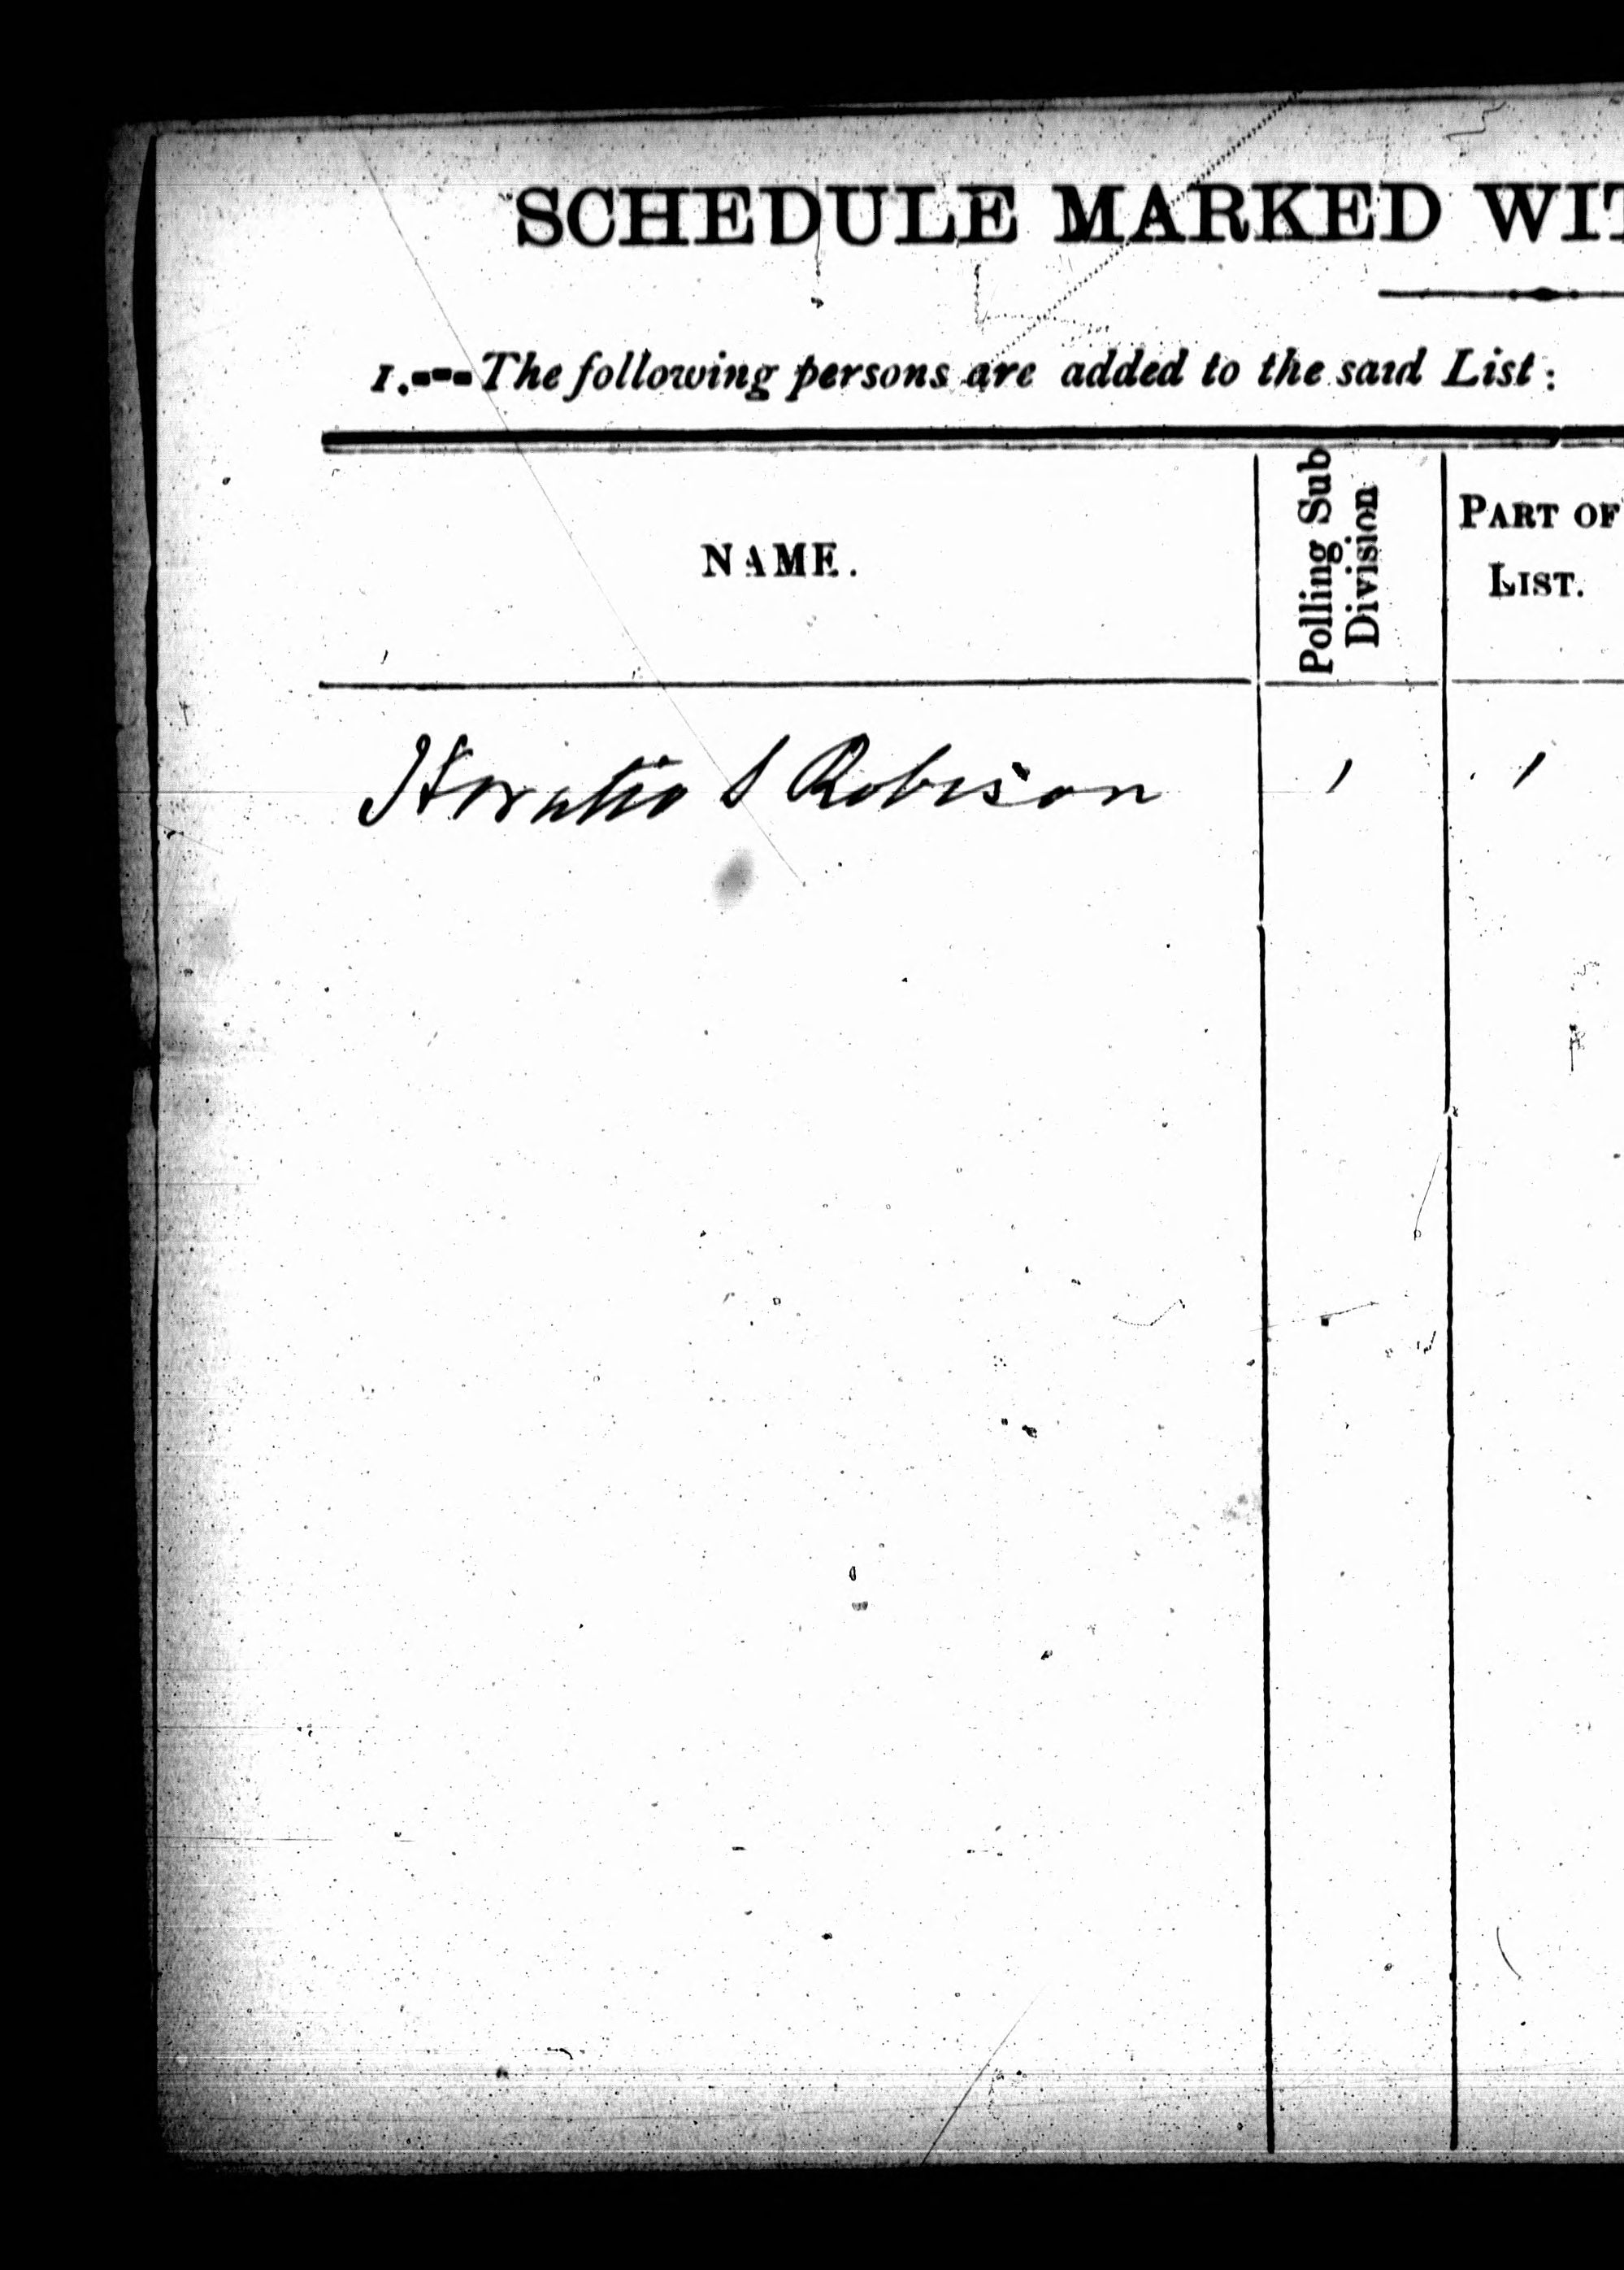 SCHEDULE MARKED WIT
1.---The following persons are added to the said List:
NAME.
Polling Sub
Division
PART OF
LIST.
Horatio S Robison 1 1